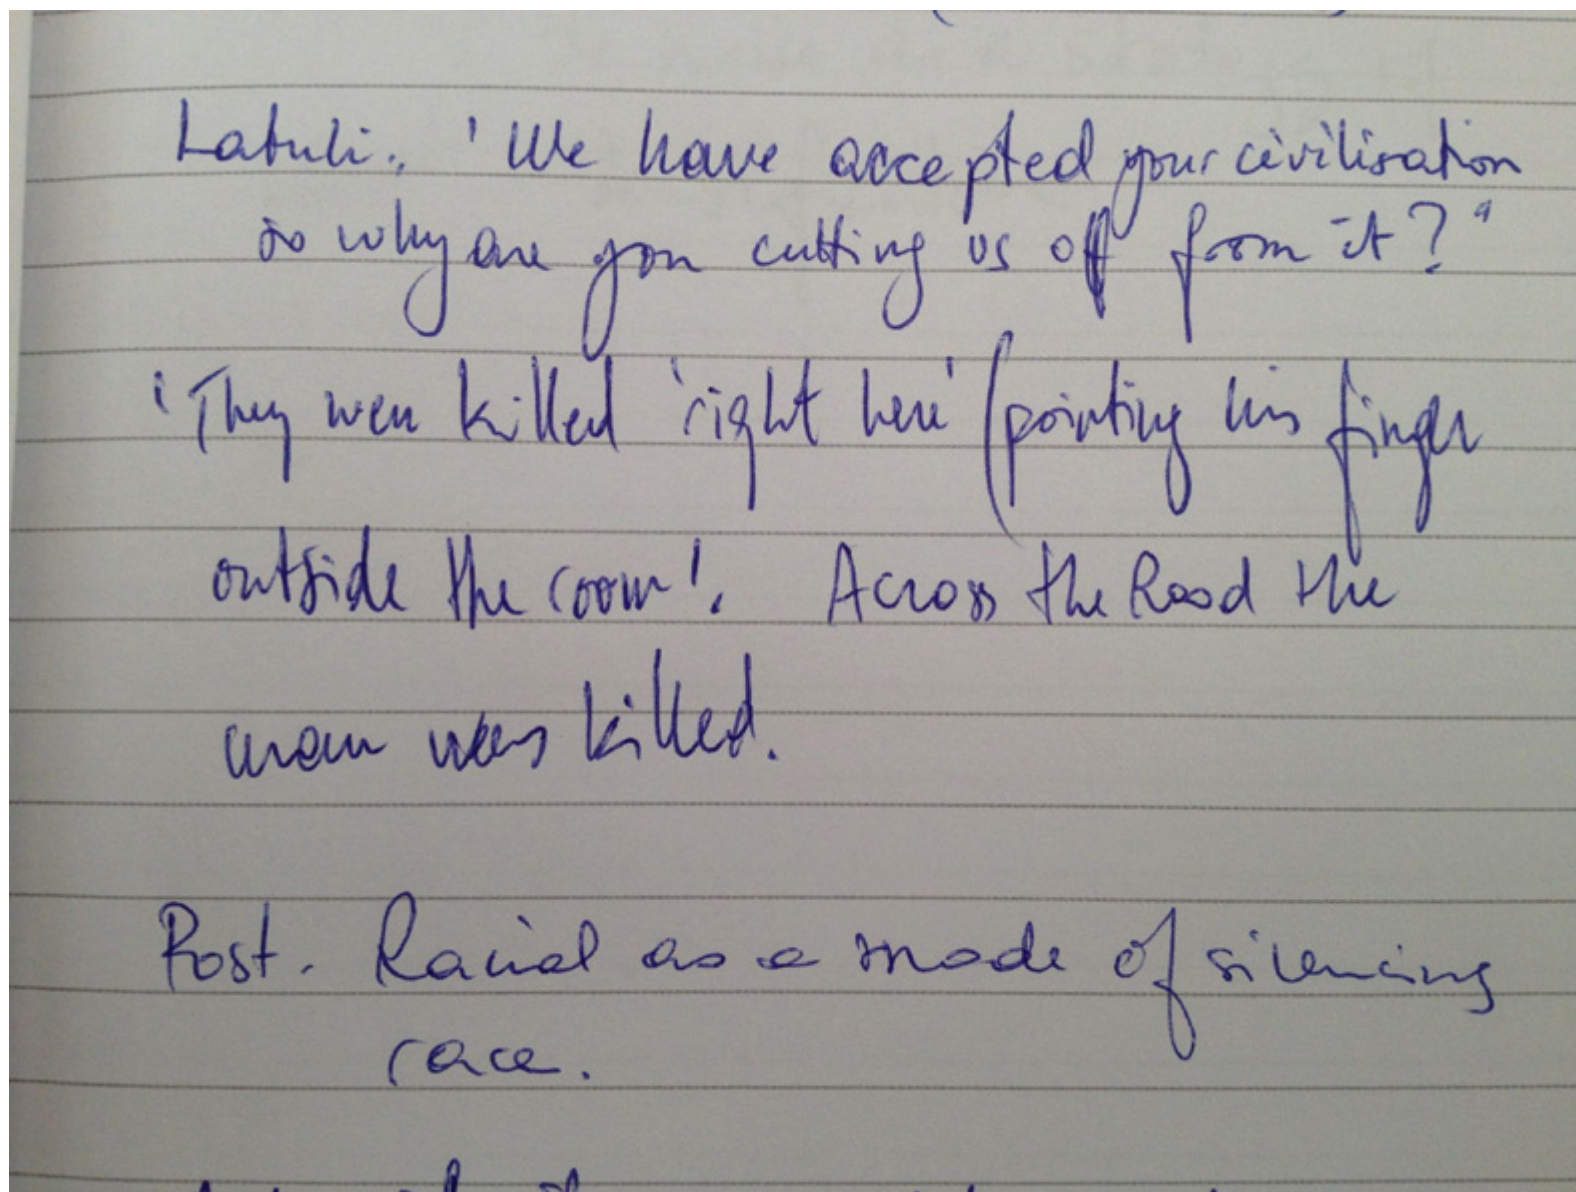 Latuli., 'We have accepted your civilisation
so why are you cutting us off from it?"
'They were killed 'right here' (pointing his finger
outside the room'. Across the Road the
man was killed.
Post. Racial as a mode of silencing
race.